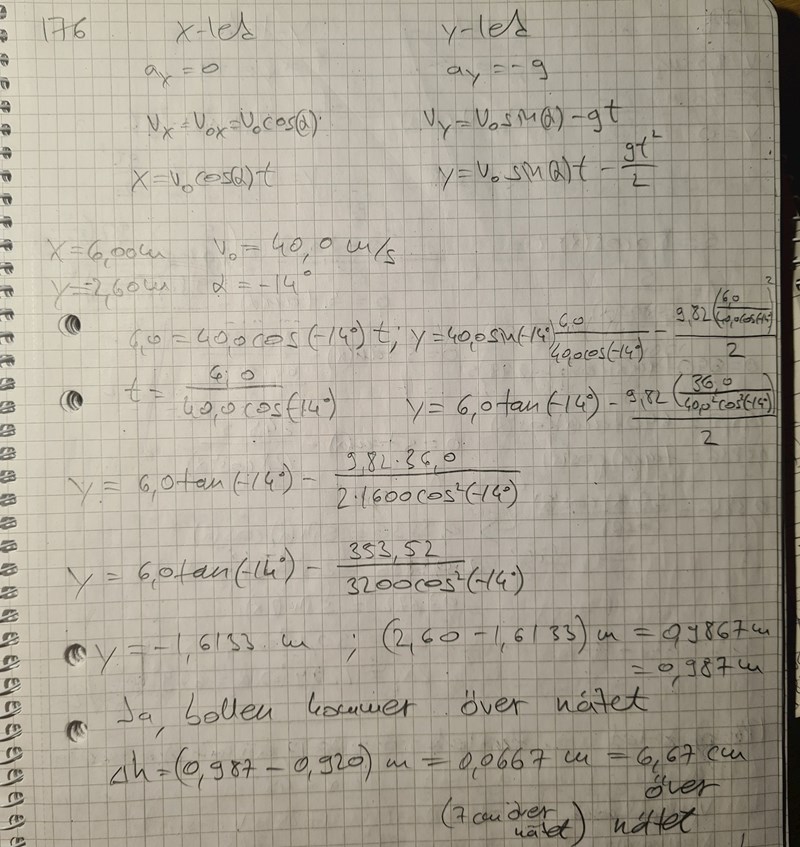 176 x-led y-led
ax = 0 ay = -g
Vx = Vox = Vo cos(α) Vy = Vo sin(α) - gt
x = Vo cos(α) t y = Vo sin(α) t - gt²/2
x = 6,00 m Vo = 40,0 m/s
y = -2,60 m α = -14°
6,0 = 40,0 cos(-14°) t; y = 40,0 sin(-14°) 6,0/40,0cos(-14°) - 9,82(6,0/40,0cos(-14°))²/2
t = 6,0/40,0cos(-14°) y = 6,0 tan(-14°) - 9,82(36,0/40,0²cos²(-14°))/2
y = 6,0 tan(-14°) - 9,82·36,0/2·1600cos²(-14°)
y = 6,0 tan(-14°) - 353,52/3200cos²(-14°)
y = -1,6133 m ; (2,60 - 1,6133) m = 0,9867 m
= 0,987 m
Ja, bollen kommer över nätet
Δh = (0,987 - 0,920) m = 0,0667 m = 6,67 cm
över
(7 cm över nätet) nätet